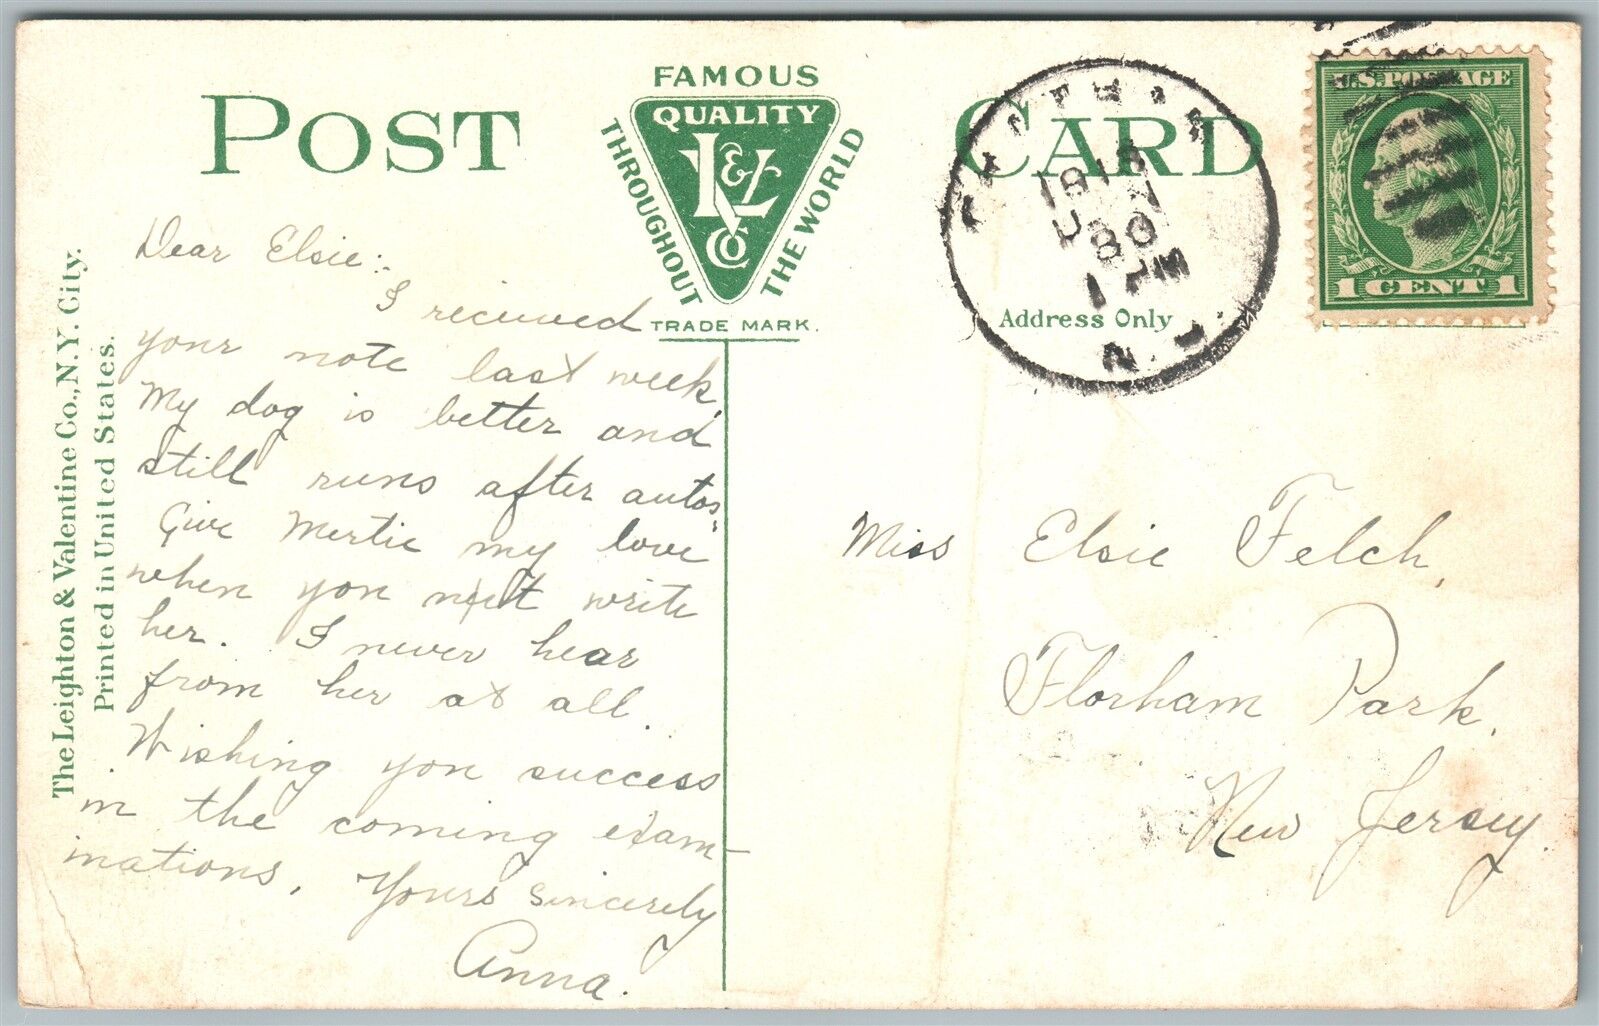 POST CARD
FAMOUS
QUALITY
L&V
Co
THROUGHOUT THE WORLD
TRADE MARK.
Address Only
U.S. POSTAGE
1 CENT 1
1 PM
N. J.
The Leighton & Valentine Co., N.Y. City.
Printed in United States.
Dear Elsie:-
I received
your note last week.
My dog is better and
still runs after autos.
Give Mertie my love
when you next write
her. I never hear
from her at all.
Wishing you success
in the coming exam-
inations. Yours sincerely
Anna.
Miss Elsie Felch,
Florham Park,
New Jersey.